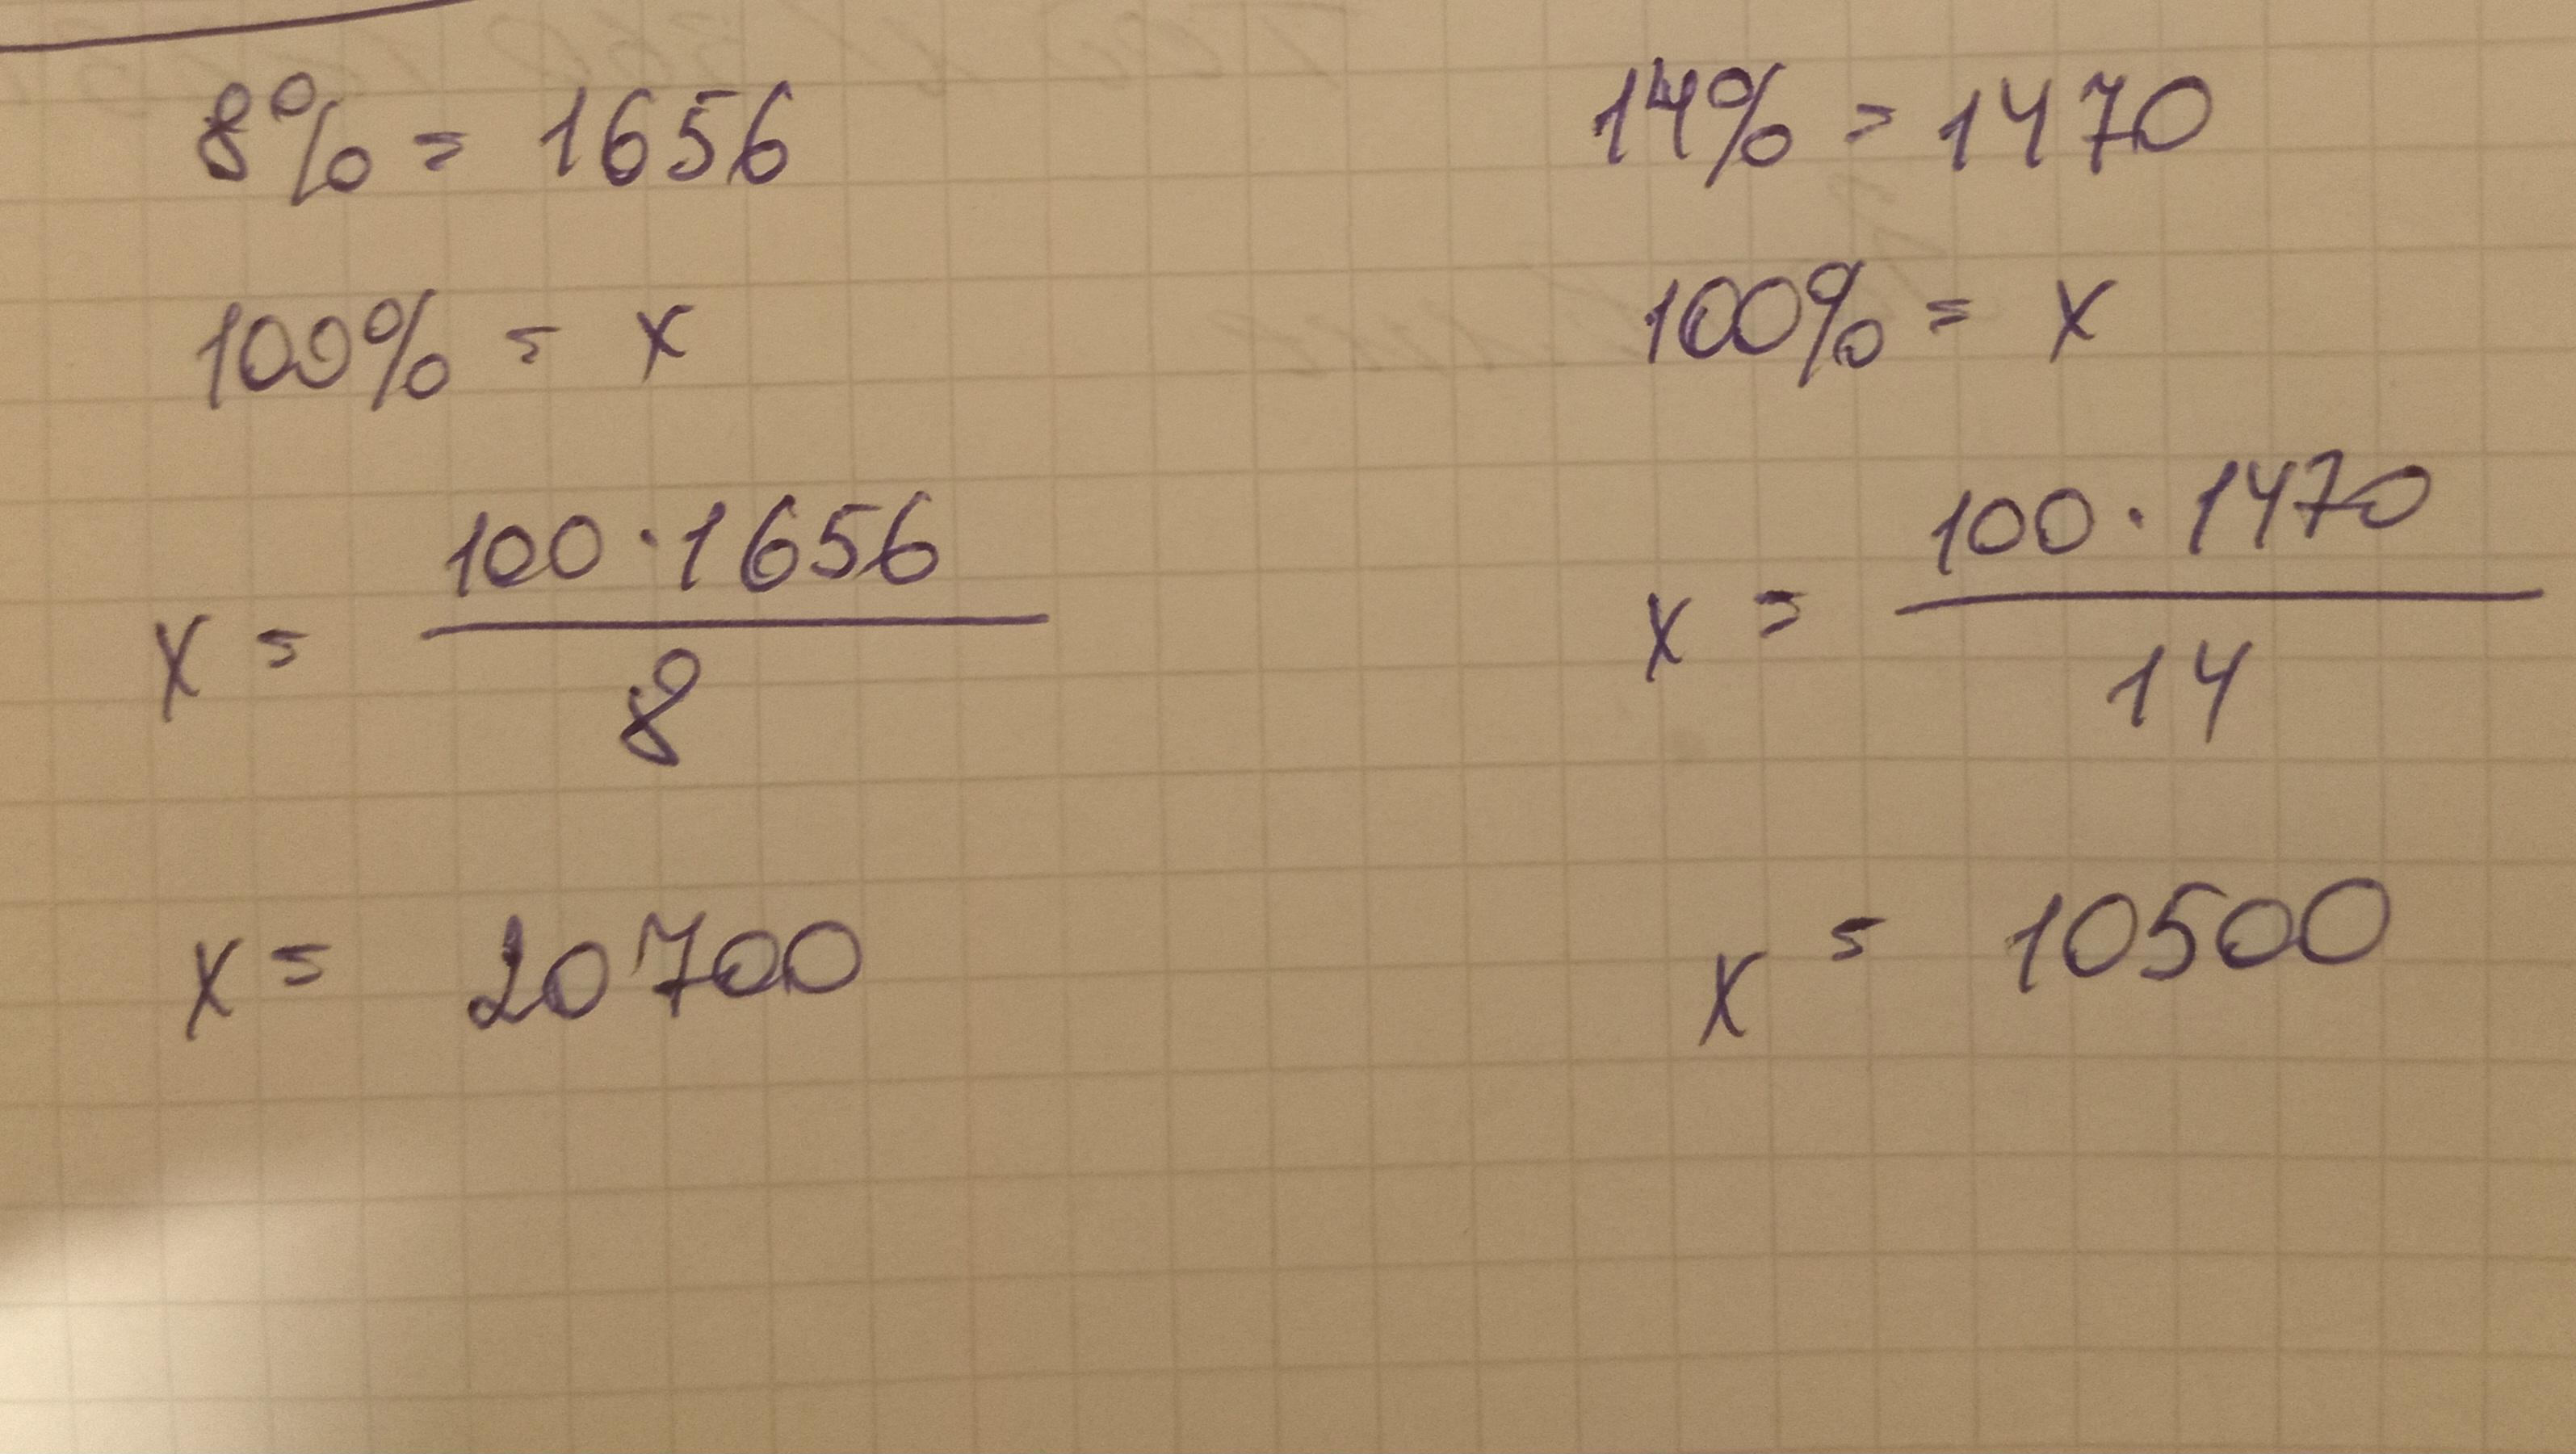 8% = 1656
100% = x
x = 100 · 1656
8
x = 20700
14% = 1470
100% = x
x = 100 · 1470
14
x = 10500